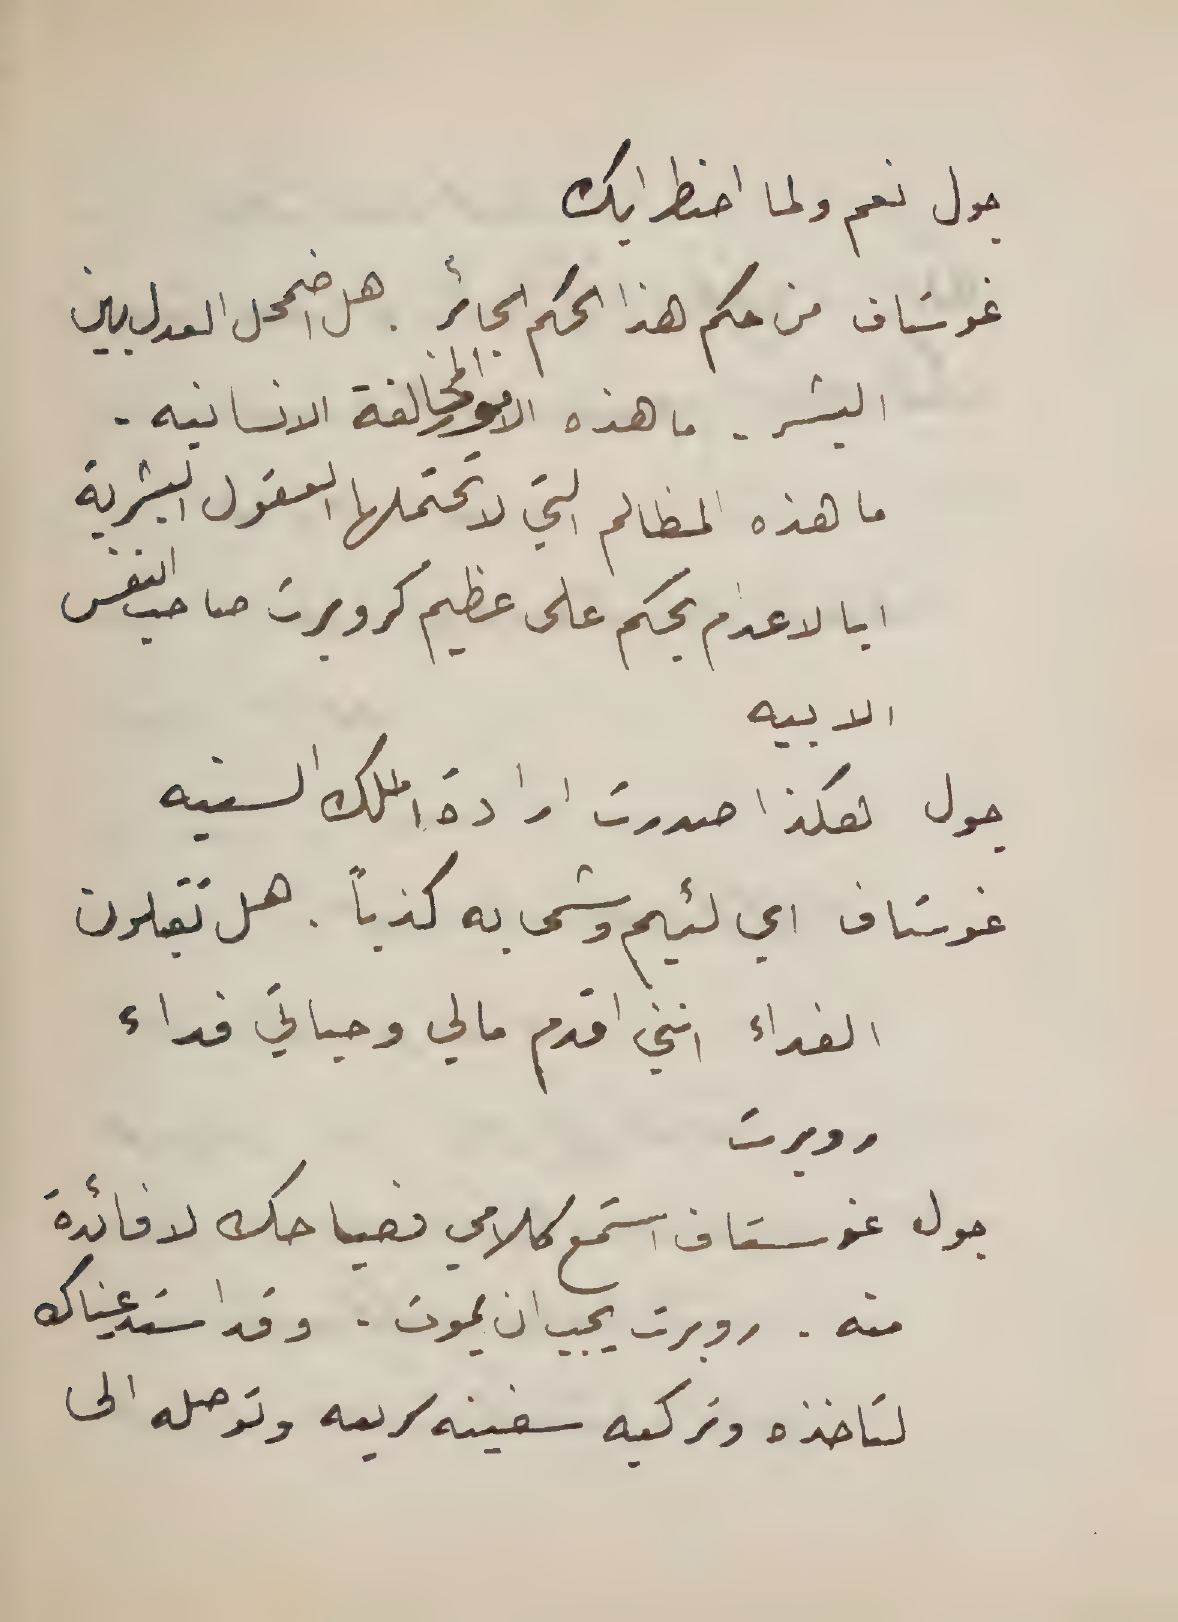 جول نعم ولما اضطرابك
غوستاف من حكم هذا الحكم الجائر . هل اضمحل العدل بين
البشر . ما هذه الامور المخالفة الانسانيه .
ما هذه المظالم التي لا تحتملها العقول البشرية
ابا لاعدام يحكم على عظيم كروبرت صاحب النفس
الابيه
جول هكذا صدرت ارادة الملك السنيه
غوستاف اي لئيم وشى به كذباً . هل تقبلون
الفداء انني اقدم مالي وحياتي فداء
روبرت
جول غوستاف استمع كلامي فصياحك لا فائدة
منه . روبرت يجب ان يموت . وقد استدعيناك
لتاخذه وتركبه سفينه سريعه وتوصله الى